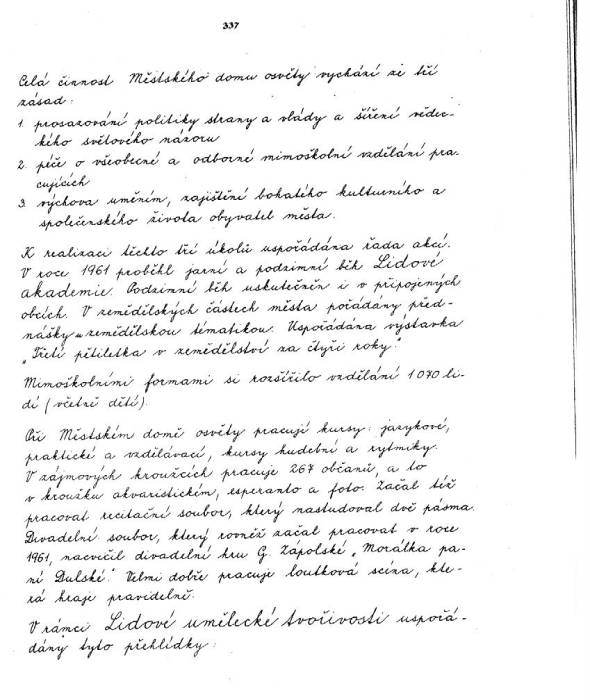 337
Celá činnost Městského domu osvěty vychází ze tří
zásad:
1. prosazování politiky strany a vlády a šíření vědec-
kého světového názoru
2. péče o všeobecné a odborné mimoškolní vzdělání pra-
cujících
3. výchova uměním, zajištění bohatého kulturního a
společenského života obyvatel města.
K realizaci těchto tří úkolů uspořádána řada akcí.
V roce 1961 proběhl jarní a podzimní běh Lidové
akademie. Podzimní běh uskutečněn i v připojených
obcích. V zemědělských částech města pořádány před-
nášky se zemědělskou tématikou. Uspořádána výstavka
„Třetí pětiletka v zemědělství za čtyři roky."
Mimoškolními formami si rozšířilo vzdělání 1070 li-
dí (včetně dětí).
Při Městském domě osvěty pracují kursy: jazykové,
praktické a vzdělávací, kursy hudební a rytmiky.
V zájmových kroužcích pracuje 267 občanů, a to
v kroužku akvaristickém, esperanto a foto. Začal též
pracovat recitační soubor, který nastudoval dvě pásma.
Divadelní soubor, který rovněž začal pracovat v roce
1961, nacvičil divadelní hru G. Zápolské „Morálka pa-
ní Dulské." Velmi dobře pracuje loutková scéna, kte-
rá hraje pravidelně.
V rámci Lidové umělecké tvořivosti uspořá-
dány tyto přehlídky: